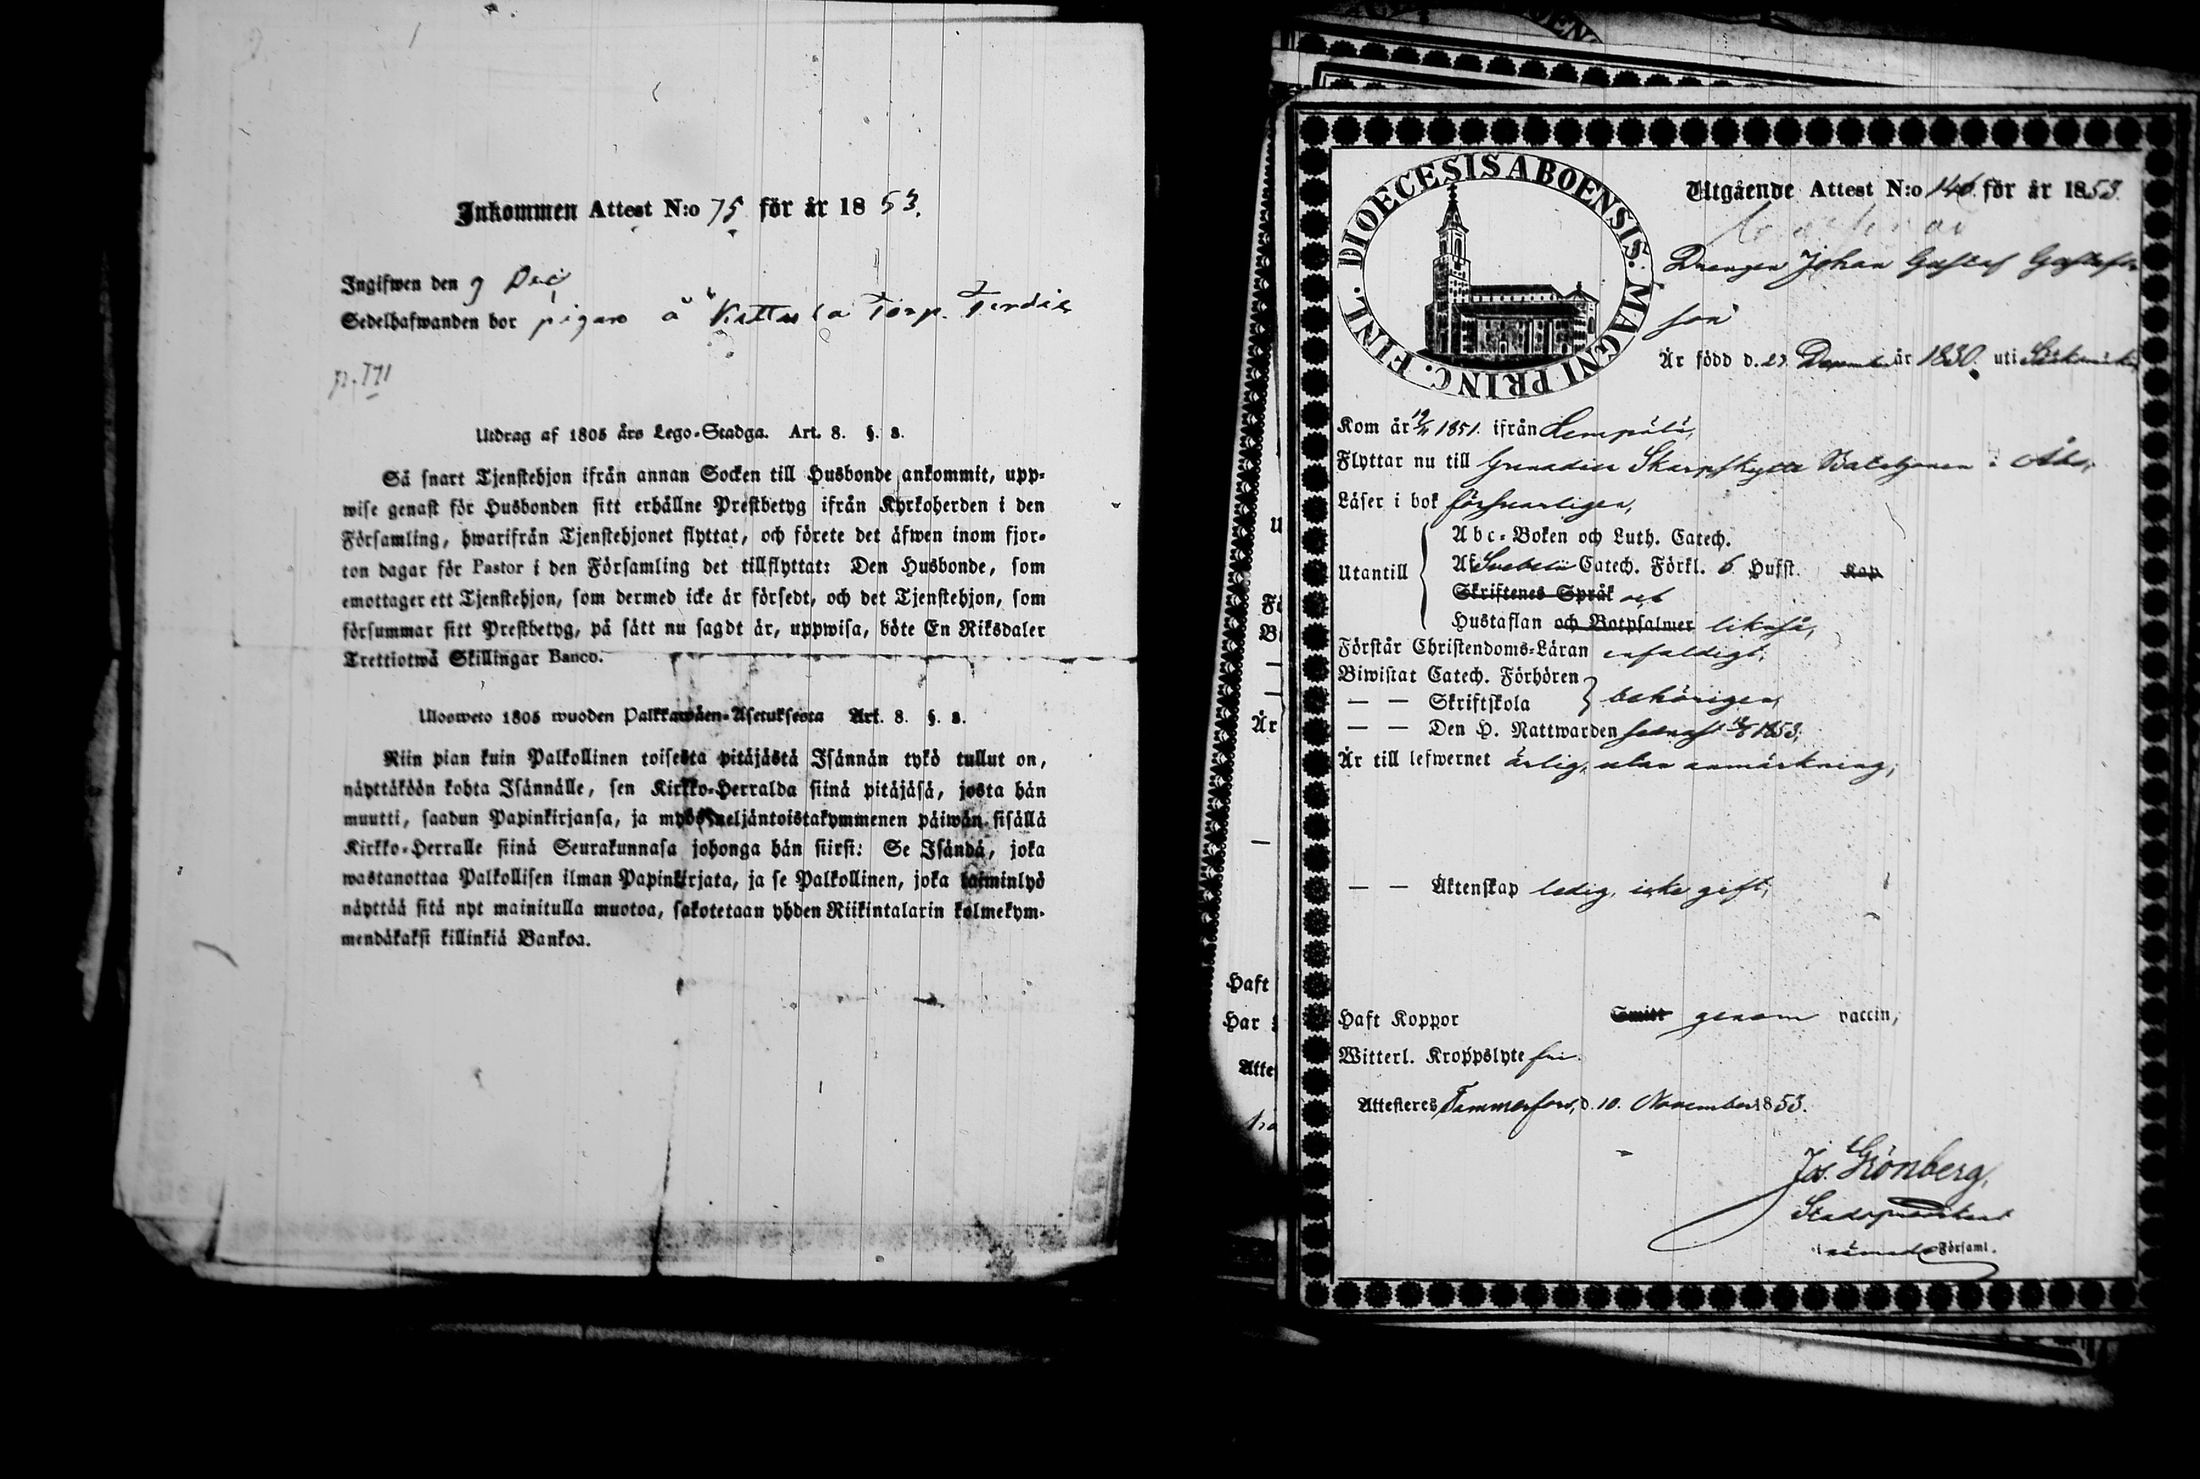 Inkommen Attest N:o 75 för år 1853.
Ingifwen den 9 Dec
Sedelhafwanden bor pigan å Torp.
Utdrag af 1805 års Lego-Stadga. Art. 8. §. 8.
Så snart Tjenstehjon ifrån annan Socken till Husbonde ankommit, upp-
wise genast för Husbonden sitt erhållne Prestbetyg ifrån Kyrkoherden i den
Församling, hwarifrån Tjenstehjonet flyttat, och förete det äfwen inom fjor-
ton dagar för Pastor i den Församling det tillflyttat: Den Husbonde, som
emottager ett Tjenstehjon, som dermed icke är försedt, och det Tjenstehjon, som
försummar sitt Prestbetyg, på sätt nu sagdt är, uppwisa, böte En Riksdaler
Trettiotwå Skillingar Banco.
Ulosweto 1805 wuoden Palkkawäen-Asetuksesta Art. 8. §. 8.
Niin pian kuin Palkollinen toisesta pitäjästä Isännän tykö tullut on,
näyttäköön kohta Isännälle, sen Kirkko-Herralda siinä pitäjäsä, josta hän
muutti, saadun Papinkirjansa, ja myös neljäntoistakymmenen päiwän sisällä
Kirkko-Herralle siinä Seurakunnasa johonga hän siirsi: Se Isändä, joka
wastanottaa Palkollisen ilman Papinkirjata, ja se Palkollinen, joka laiminlyö
näyttää sitä nyt mainitulla muotoa, sakotetaan yhden Riikintalarin kolmekym-
mendäkaksi killinkiä Bankoa.
DIOECESIS ABOENSIS. MAGNI PRINC. FINL.
Utgående Attest N:o 146 för år 1853.
Drengen Johan Gustaf Gustafs
son
Är född d. 27 December år 1830. uti
Kom år 1851. ifrån Lempälä,
Flyttar nu till Grenadier Skarpskytte Bataljonen i Åbo,
Läser i bok försvarligen,
Utantill
Abc-Boken och Luth. Catech.
Af Svebelii Catech. Förkl. 6 Hufst. Kap
Skriftenes Språk och
Hustaflan och Botpsalmer likaså,
Förstår Christendoms-Läran enfaldigt,
Biwistat Catech. Förhören
— — Skriftskola behörigen,
— — Den H. Nattwarden sednast 1853,
Är till lefwernet ärlig, utan anmärkning,
— — Äktenskap ledig, icke gift,
Haft Koppor Smitt genom vaccin,
Witterl. Kroppslyte fri.
Attesteres Tammerfors, d. 10. November 1853.
Js. Grönberg,
Församl.